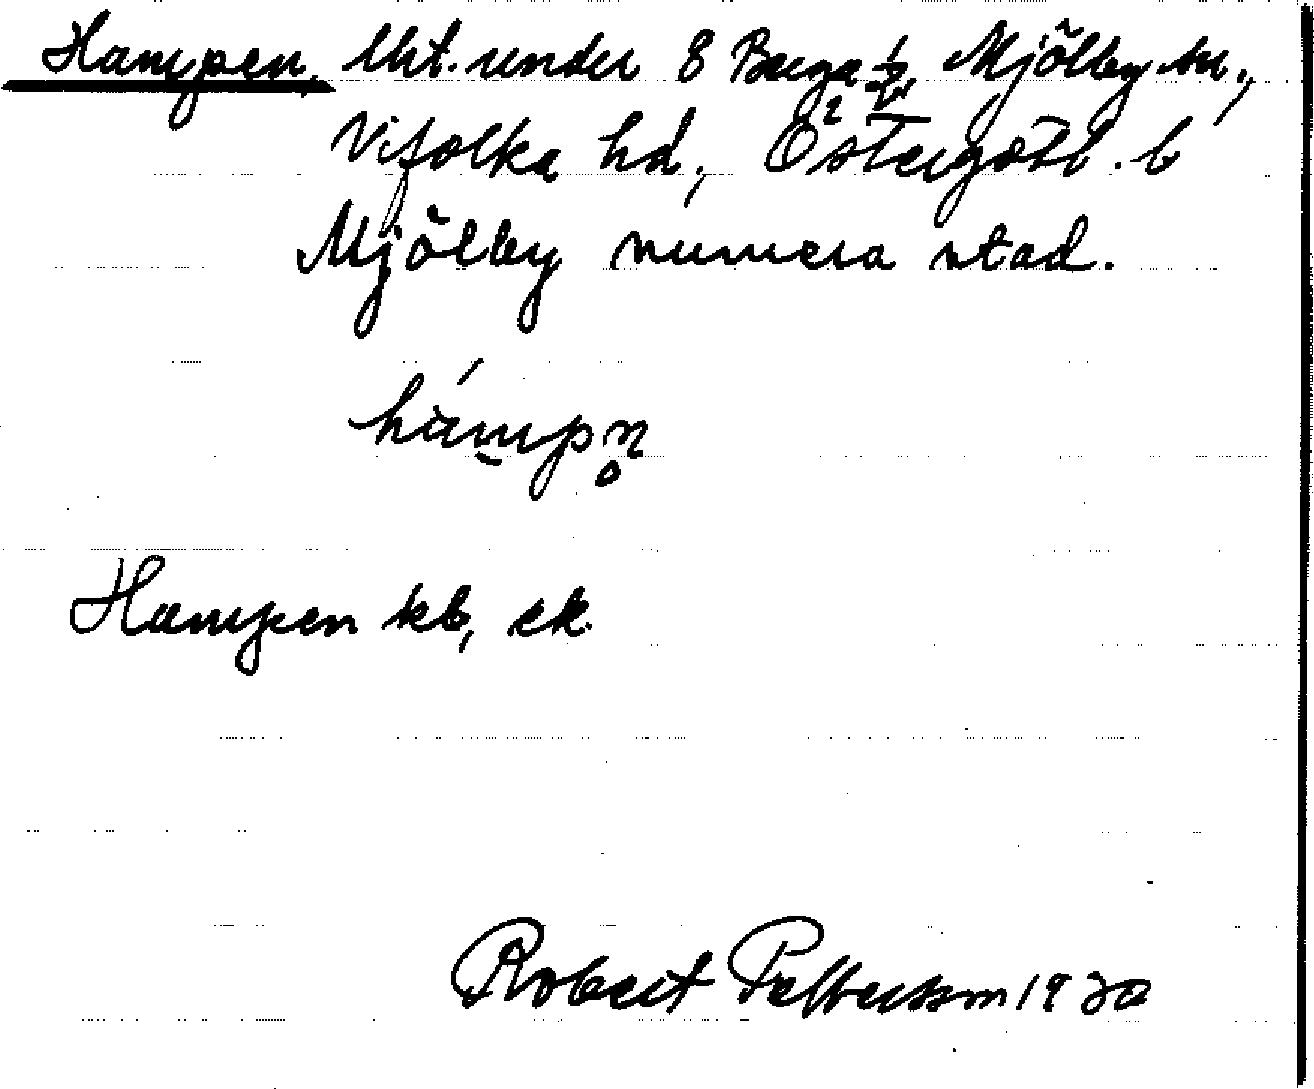 Hampen, lht. under 8 Berga ½ Mjölby sn.,
Vifolka hd, Östergötl. l
Mjölby numera stad.
hámpn̥
Hampen kb, ek.
Robert Pettersson 1930